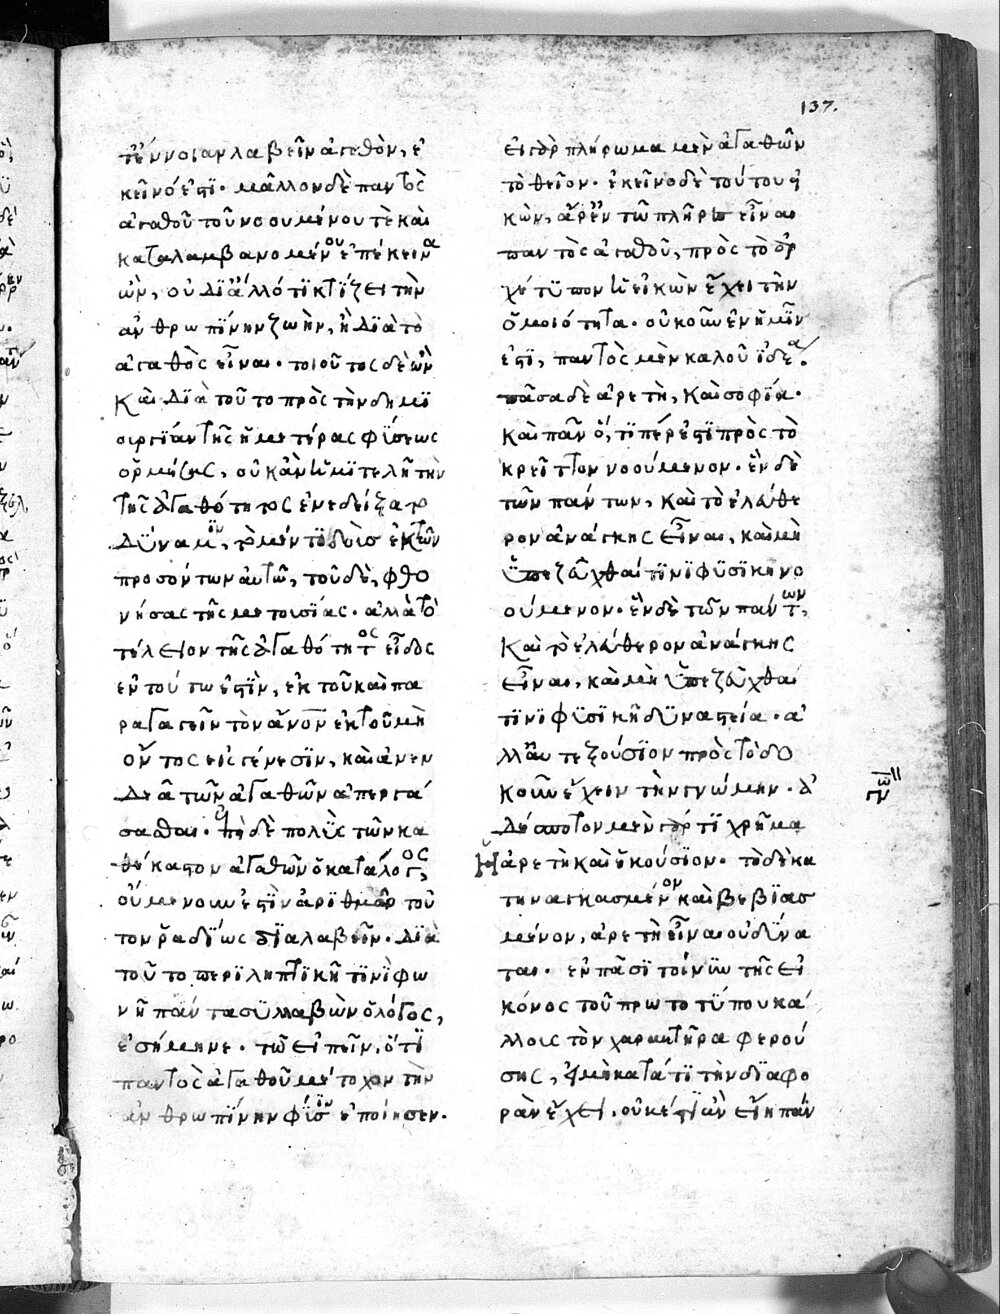 137.
τίν ἔννοιαν λαβεῖν ἀγαθὸν, ἐ
κεῖνό ἐστϊ· μᾶλλον δὲ παντὸς
ἀγαθοῦ τοῦ νοουμένου τὲ καὶ
καταλαμβανομένου ἐπέκεινα
ὢν, οὐ δϊ ἄλλό τϊ κτίζει τὴν
ἀνθρωπίνην ζωὴν, ἢ δϊὰ τὸ
ἀγαθὸς εἶναι· τοιοῦτος δὲ ὢν
καὶ δϊὰ τοῦτο πρὸς τὴν δημϊ
ουργΐαν τῆς ἡμετέρας φύσεως
ὁρμήσας, οὐκ ἂν ἡμϊτελῆ τὴν
τῆς ἀγαθότητος ἐνεδείξατο
δύναμϊν, τὸ μέν τϊ δοὺς ἐκ τῶν
προσόντων αὐτῶ, τοῦ δὲ, φθο
νήσας τῆς μετουσίας· ἀλλὰ τὸ
τέλειον τῆς ἀγαθότητος εἶδος
ἐν τούτω ἐστῒν, ἐκ τοῦ καὶ πα
ραγαγεῖν τὸν ἄνον ἐκ τοῦ μὴ
ὄντος εἰς γένεσϊν, καὶ ἀνεν
δεᾶ τῶν ἀγαθῶν ἀπεργά
σασθαι· ἐπεὶ δὲ πολὺς τῶν κα
θέκαστον ἀγαθῶν ὁ κατάλογος,
οὐ μὲν οὖν ἐστῒν ἀρϊθμῶ τοῦ
τον ῥαδΐως δϊαλαβεῖν· δϊὰ
τοῦτο περϊληπτϊκῆ τϊνὶ φω
νῆ πάντα συλλαβὼν ὁ λόγος,
ἐσήμηνε· τῶ εἰπεῖν, ὅτϊ
παντὸς ἀγαθοῦ μέτοχον τὴν
ἀνθρωπΐνην φύσϊν ἐποίησεν·
εἰ γὰρ πλήρωμα μὲν ἀγαθῶν
τὸ θεῖον· ἐκεῖνο δὲ τούτου εἰ
κὼν, ἄρ' ἐν τῶ πλῆρες εἶναι
παντὸς ἀγαθοῦ, πρὸς τὸ ἀρ
χέτϋπον ἡ εἰκὼν ἔχει τὴν
ὁμοιότητα· οὐκοῦν ἐν ἡμῖν
ἐστῒ, παντὸς μὲν καλοῦ ἰδέα·
πᾶσα δὲ ἀρετὴ, καὶ σοφΐα·
καὶ πᾶν ὅ, τϊ πέρ ἐστϊ πρὸς τὸ
κρεῖττον νοούμενον· ἓν δὲ
τῶν πάντων, καὶ τὸ ἐλεύθε
ρον ἀνάγκης εἶναι, καὶ μὴ
ὑπεζεῦχθαί τϊνϊ φϋσϊκη νο
ούμενον· ἓν δὲ τῶν πάντων,
καὶ τὸ ἐλεύθερον ἀνάγκης
εἶναι, καὶ μὴ ὑπεζεῦχθαί
τϊνϊ φϋσϊκῆ δϋναστεία· ἀ
λλ' αὐτεξούσϊον πρὸς τὸ δο
κοῦν ἔχειν τὴν γνώμην· ἀ
δέσποτον μὲν γάρ τϊ χρῆμα
ἡ ἀρετὴ καὶ ἑκούσϊον· τὸ δὲ κα
τηναγκασμένον καὶ βεβϊασ
μένον, ἀρετὴ εἶναι οὐ δύνα
ται· ἐν πᾶσϊ τοίνϋν τῆς εἰ
κόνος τοῦ πρωτοτύπου κά
λλους τὸν χαρακτῆρα φερού
σης, εἰ μὴ κατά τϊ τὴν δϊαφο
ρὰν ἔχει, οὐκέτϊ ἂν εἴη πάν